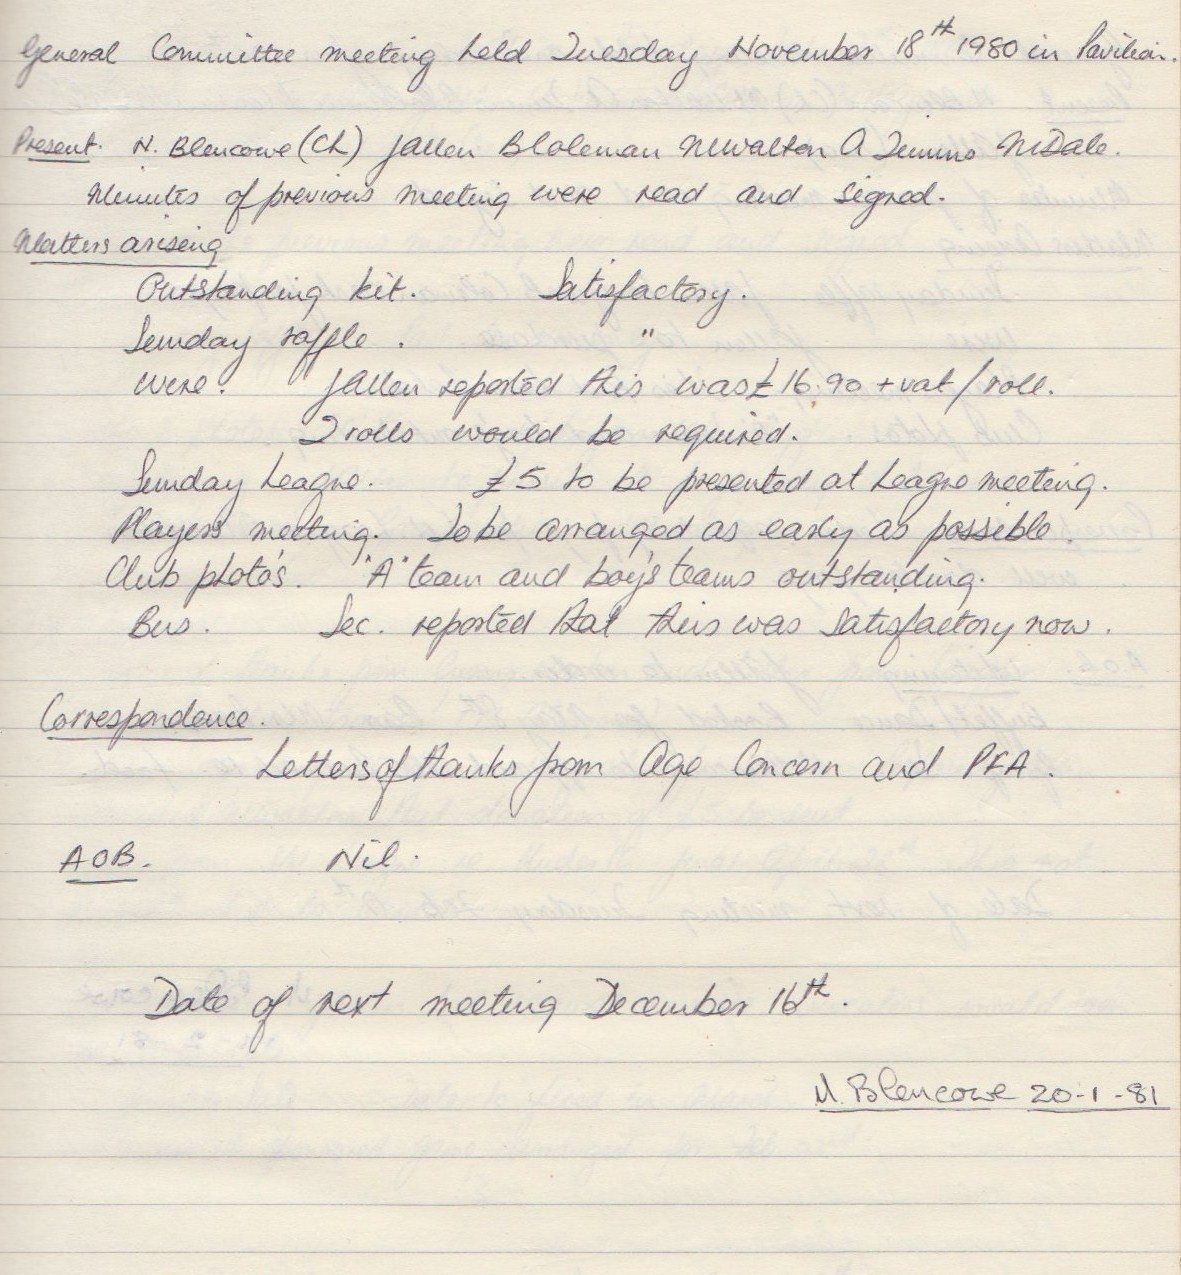 General Committee meeting held Tuesday November 18th 1980 in Pavilion.
Present. N. Blencowe (Ch) J Allen B Coleman N Walton A Timms N Dale.
Minutes of previous meeting were read and signed.
Matters arising
Outstanding kit. Satisfactory.
Sunday raffle. "
Wire. J Allen reported this was £16.90 + vat/roll.
2 rolls would be required.
Sunday League. £5 to be presented at League meeting.
Players meeting. To be arranged as early as possible.
Club photo's. "A" team and boy's teams outstanding.
Bus. Sec. reported that this was satisfactory now.
Correspondence.
Letters of thanks from Age Concern and PFA.
AOB. Nil.
Date of next meeting December 16th.
N. Blencowe 20-1-81